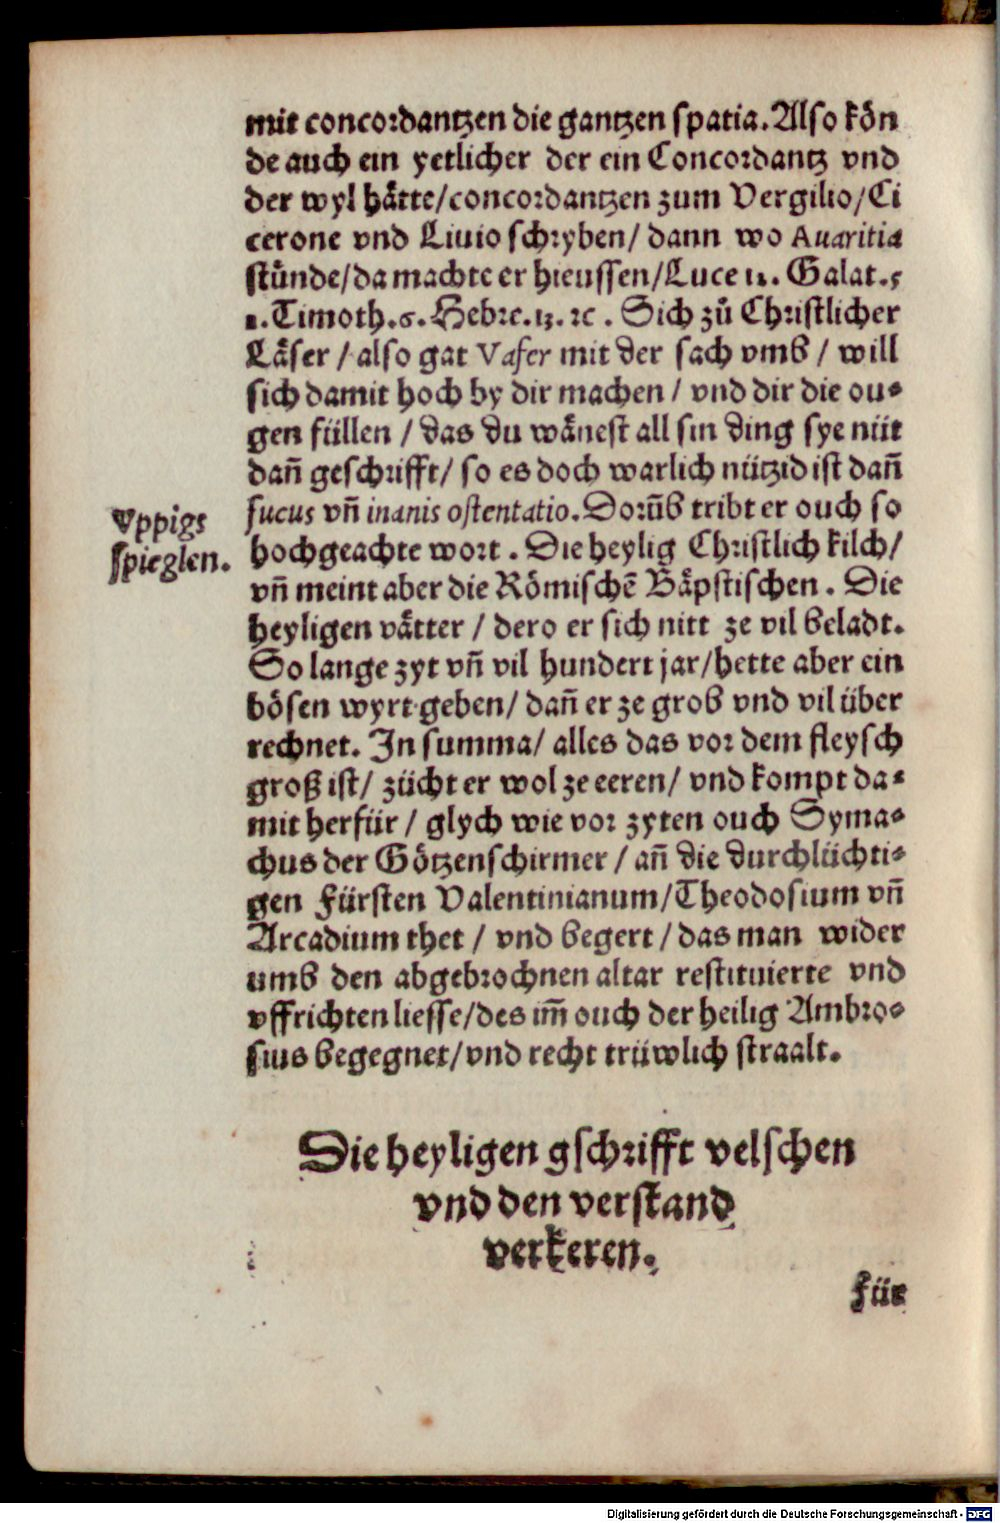 mit concordantzen die gantzen spatia. Also kön
de auch ein yetlicher der ein Concordantz vnd
der wyl hätte/concordantzen zum Vergilio/Ci
cerone vnd Liuio schryben/ dann wo Auaritia
stünde/da machte er hieussen/Luce 12. Galat. 5
1. Timoth. 6. Hebre. 13. ꝛc. Sich zů Christlicher
Läser / also gat Vafer mit der sach vmb / will
sich damit hoch by dir machen / vnd dir die ou⸗
gen füllen / das du wänest all sin ding sye nüt
dañ geschrifft/ so es doch warlich nützid ist dañ
fucus vñ inanis ostentatio. Dorūb tribt er ouch so
Vppigs
spieglen.
hochgeachte wort. Die heylig Christlich kilch/
vñ meint aber die Römischē Bäpstischen. Die
heyligen vätter / dero er sich nitt ze vil beladt.
So lange zyt vñ vil hundert jar/hette aber ein
bösen wyrt geben/ dañ er ze grob vnd vil über
rechnet. In summa/ alles das vor dem fleysch
groß ist/ zücht er wol ze eeren/ vnd kompt da⸗
mit herfür / glych wie vor zyten ouch Syma⸗
chus der Götzenschirmer / añ die durchlüchti⸗
gen Fürsten Valentinianum/Theodosium vñ
Arcadium thet / vnd begert / das man wider
umb den abgebrochnen altar restituierte vnd
vffrichten liesse/des im̄ ouch der heilig Ambro⸗
sius begegnet/vnd recht trüwlich straalt.
Die heyligen gschrifft velschen
vnd den verstand
verkeren.
Für
Digitalisierung gefördert durch die Deutsche Forschungsgemeinschaft - DFG